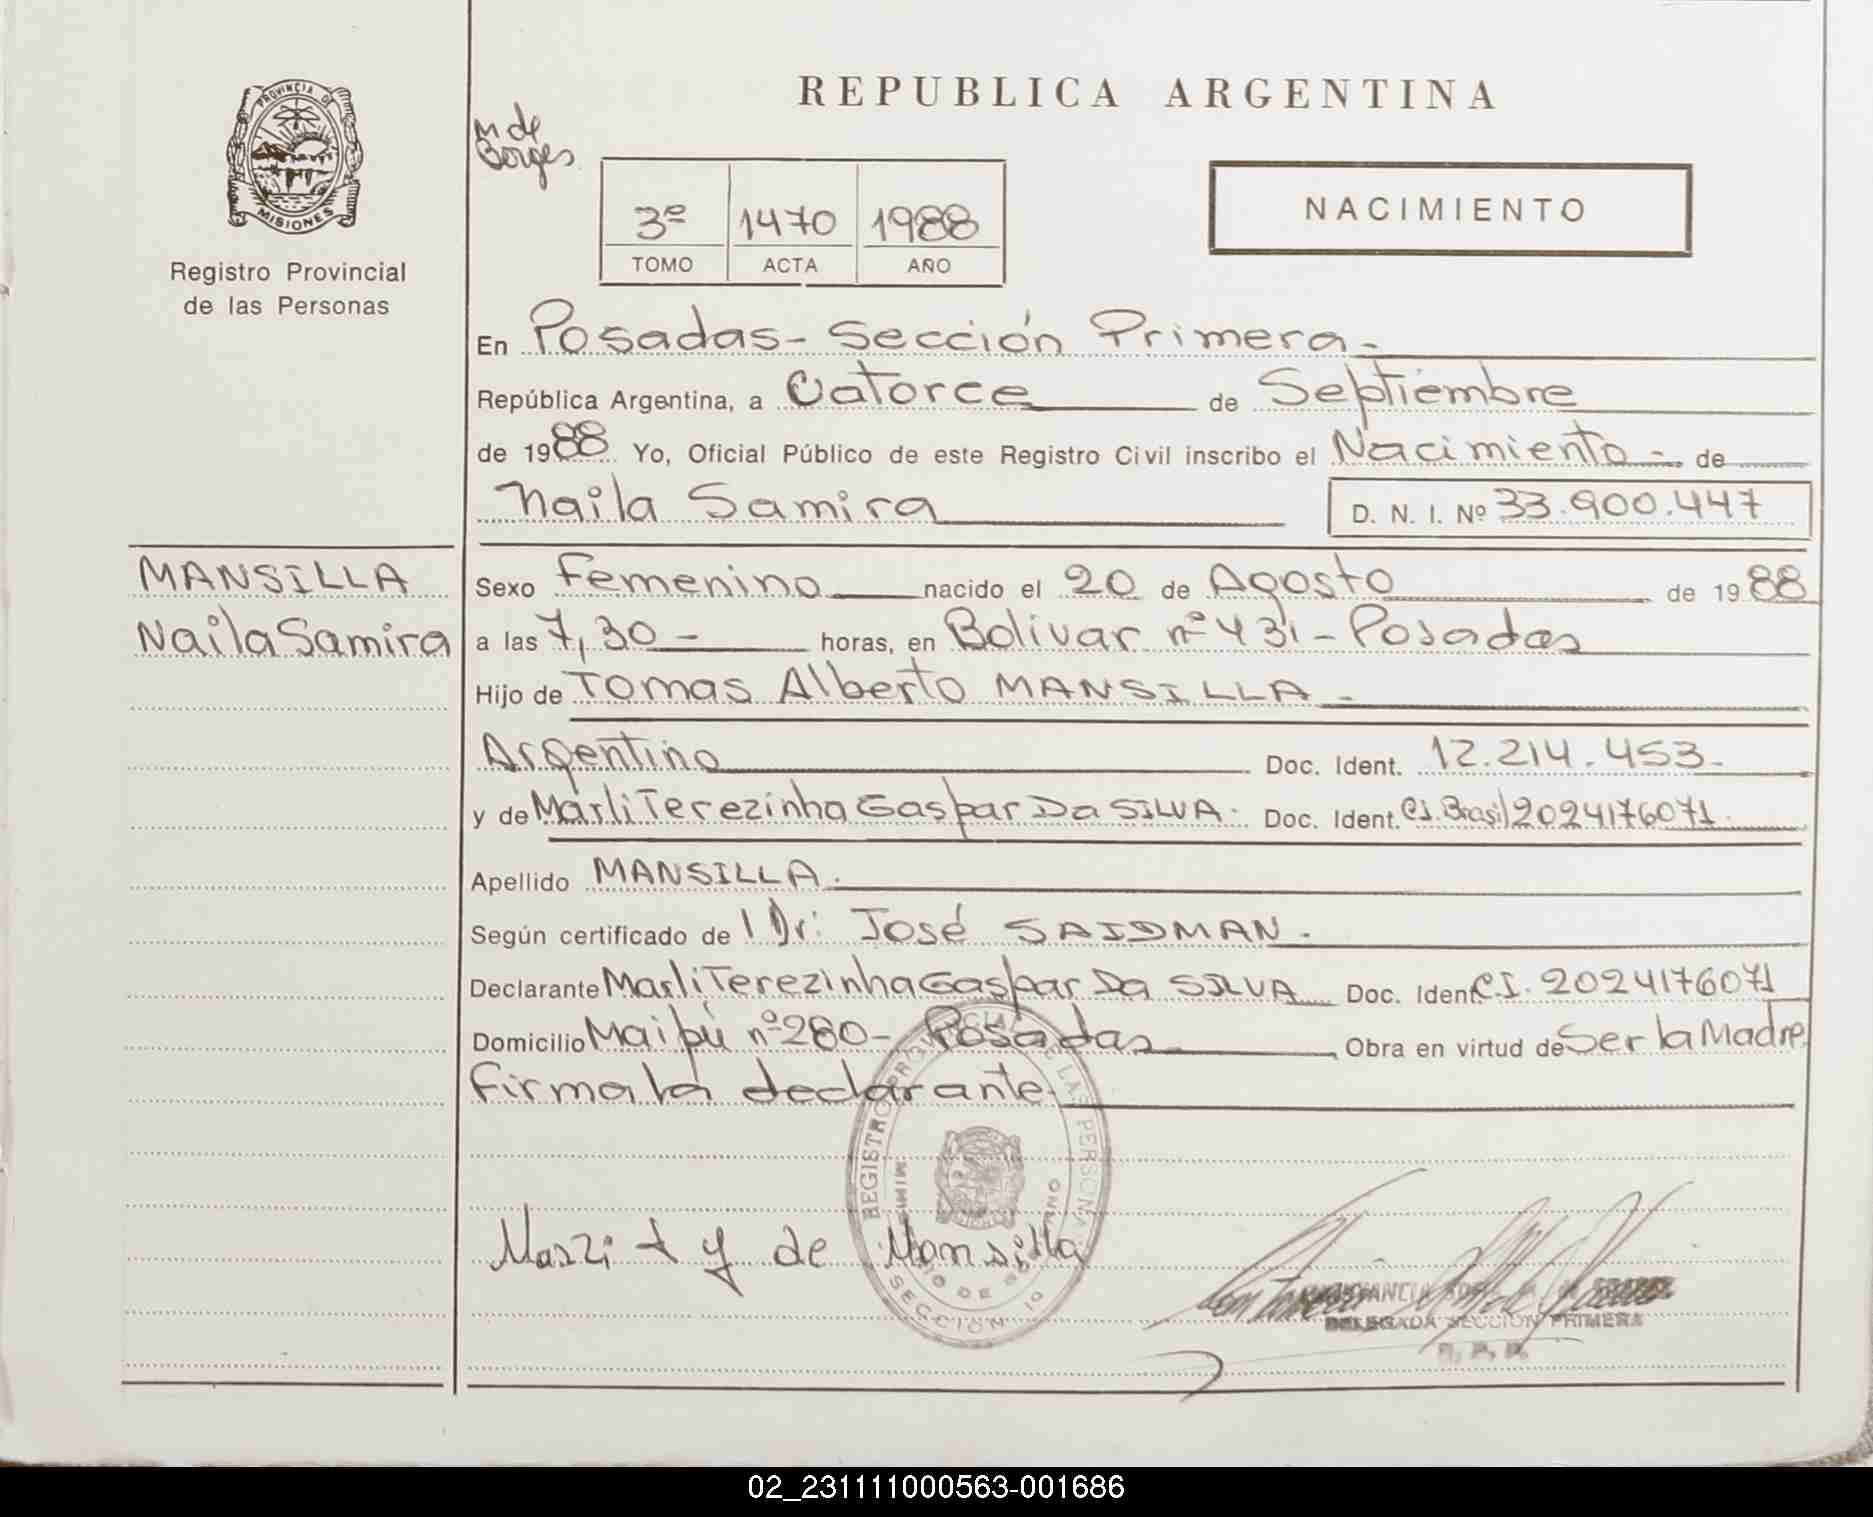 REPUBLICA ARGENTINA
PROVINCIA DE
MISIONES
Registro Provincial
de las Personas
M de
Borges
3º 1470 1988
TOMO ACTA AÑO
NACIMIENTO
En Posadas - Sección Primera -
República Argentina, a Catorce de Septiembre
de 1988 Yo, Oficial Público de este Registro Civil inscribo el Nacimiento - de
Naila Samira D. N. I. Nº 33.900.447
MANSILLA
Naila Samira
Sexo Femenino nacido el 20 de Agosto de 1988
a las 7,30 - horas, en Bolivar nº 431 - Posadas
Hijo de Tomas Alberto MANSILLA -
Argentino Doc. Ident. 12.214.453 -
y de Marli Terezinha Gaspar Da SILVA - Doc. Ident. C.I. Brasil 2024176071 -
Apellido MANSILLA .
Según certificado de l Dr: José SAIDMAN .
Declarante Marli Terezinha Gaspar Da SILVA Doc. Ident. C.I. 2024176071
Domicilio Maipú nº 280 - Posadas Obra en virtud de Ser la Madre
firma la declarante
REGISTRO PROVINCIAL DE LAS PERSONAS
SECCION 1º
de Mansilla
DELEGADA SECCION PRIMERA
R. P. P.
02_231111000563-001686